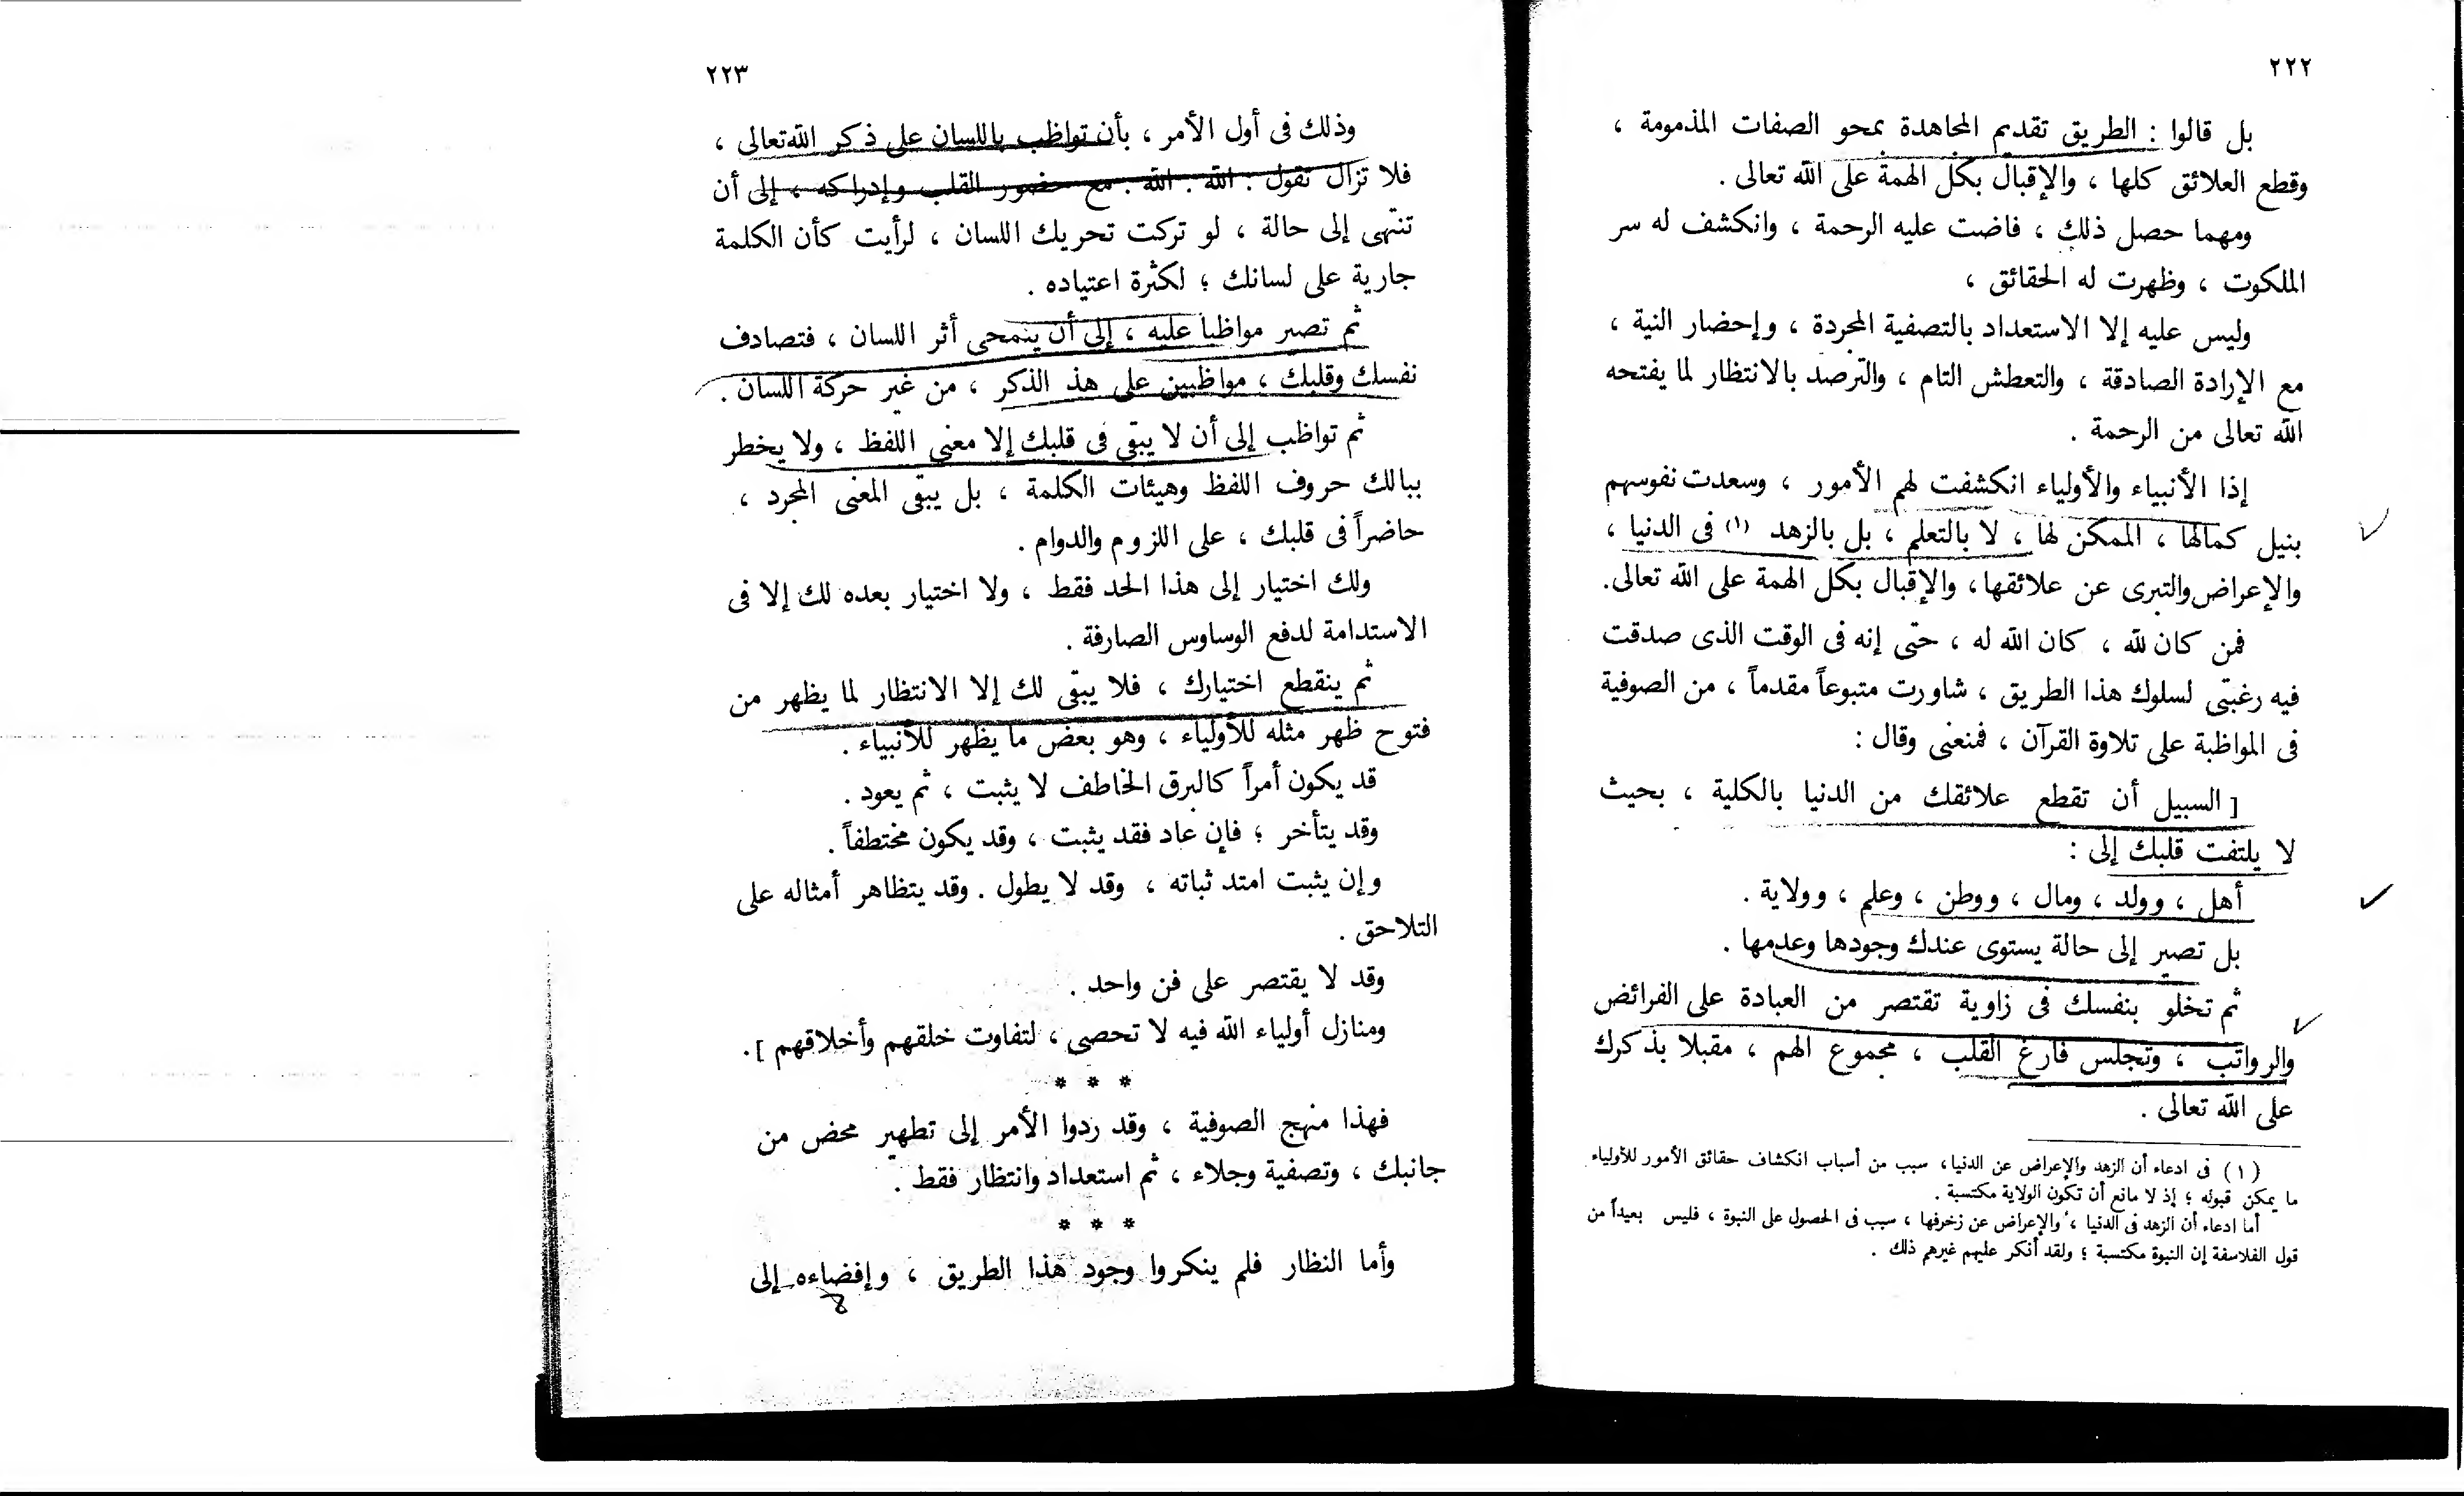 ٢٢٢
بل قالوا : الطريق تقديم المجاهدة بمحو الصفات المذمومة ،
وقطع العلائق كلها ، والإقبال بكل الهمة على الله تعالى .
ومهما حصل ذلك ، فاضت عليه الرحمة ، وانكشف له سر
الملكوت ، وظهرت له الحقائق ،
وليس عليه إلا الاستعداد بالتصفية المجردة ، وإحضار النية ،
مع الإرادة الصادقة ، والتعطش التام ، والترصد بالانتظار لما يفتحه
الله تعالى من الرحمة .
إذا الأنبياء والأولياء انكشفت لهم الأمور ، وسعدت نفوسهم
بنيل كمالها ، الممكن لها ، لا بالتعلم ، بل بالزهد (١) فى الدنيا ،
والإعراض والتبرى عن علائقها ، والإقبال بكل الهمة على الله تعالى .
فمن كان لله ، كان الله له ، حتى إنه فى الوقت الذى صدقت
فيه رغبتى لسلوك هذا الطريق ، شاورت متبوعاً مقدماً ، من الصوفية
فى المواظبة على تلاوة القرآن ، فمنعنى وقال :
[ السبيل أن تقطع علائقك من الدنيا بالكلية ، بحيث
لا يلتفت قلبك إلى :
أهل ، وولد ، ومال ، ووطن ، وعلم ، وولاية .
بل تصير إلى حالة يستوى عندك وجودها وعدمها .
ثم تخلو بنفسك فى زاوية تقتصر من العبادة على الفرائض
والرواتب ، وتجلس فارغ القلب ، مجموع الهم ، مقبلا بذكرك
على الله تعالى .
(١) فى ادعاء أن الزهد والإعراض عن الدنيا ، سبب من أسباب انكشاف حقائق الأمور للأولياء
ما يمكن قبوله ؛ إذ لا مانع أن تكون الولاية مكتسبة .
أما ادعاء أن الزهد فى الدنيا ، والإعراض عن زخرفها ، سبب فى الحصول على النبوة ، فليس بعيداً من
قول الفلاسفة إن النبوة مكتسبة ؛ ولقد أنكر عليهم غيرهم ذلك .
٢٢٣
وذلك فى أول الأمر ، بأن تواظب باللسان على ذكر الله تعالى ،
فلا تزال تقول : الله . الله . مع حضور القلب وإدراكه ، إلى أن
تنتهى إلى حالة ، لو تركت تحريك اللسان ، لرأيت كأن الكلمة
جارية على لسانك ؛ لكثرة اعتياده .
ثم تصير مواظباً عليه ، إلى أن ينمحى أثر اللسان ، فتصادف
نفسك وقلبك ، مواظبين على هذ الذكر ، من غير حركة اللسان .
ثم تواظب إلى أن لا يبقى فى قلبك إلا معنى اللفظ ، ولا يخطر
ببالك حروف اللفظ وهيئات الكلمة ، بل يبقى المعنى المجرد ،
حاضراً فى قلبك ، على اللزوم والدوام .
ولك اختيار إلى هذا الحد فقط ، ولا اختيار بعده لك إلا فى
الاستدامة لدفع الوساوس الصارفة .
ثم ينقطع اختيارك ، فلا يبقى لك إلا الانتظار لما يظهر من
فتوح ظهر مثله للأولياء ، وهو بعض ما يظهر للأنبياء .
قد يكون أمراً كالبرق الخاطف لا يثبت ، ثم يعود .
وقد يتأخر ؛ فإن عاد فقد يثبت ، وقد يكون مختطفاً .
وإن يثبت امتد ثباته ، وقد لا يطول . وقد يتظاهر أمثاله على
التلاحق .
وقد لا يقتصر على فن واحد .
ومنازل أولياء الله فيه لا تحصى ، لتفاوت خلقهم وأخلاقهم ] .
* * *
فهذا منهج الصوفية ، وقد ردوا الأمر إلى تطهير محض من
جانبك ، وتصفية وجلاء ، ثم استعداد وانتظار فقط .
* * *
وأما النظار فلم ينكروا وجود هذا الطريق ، وإفضاءه إلى